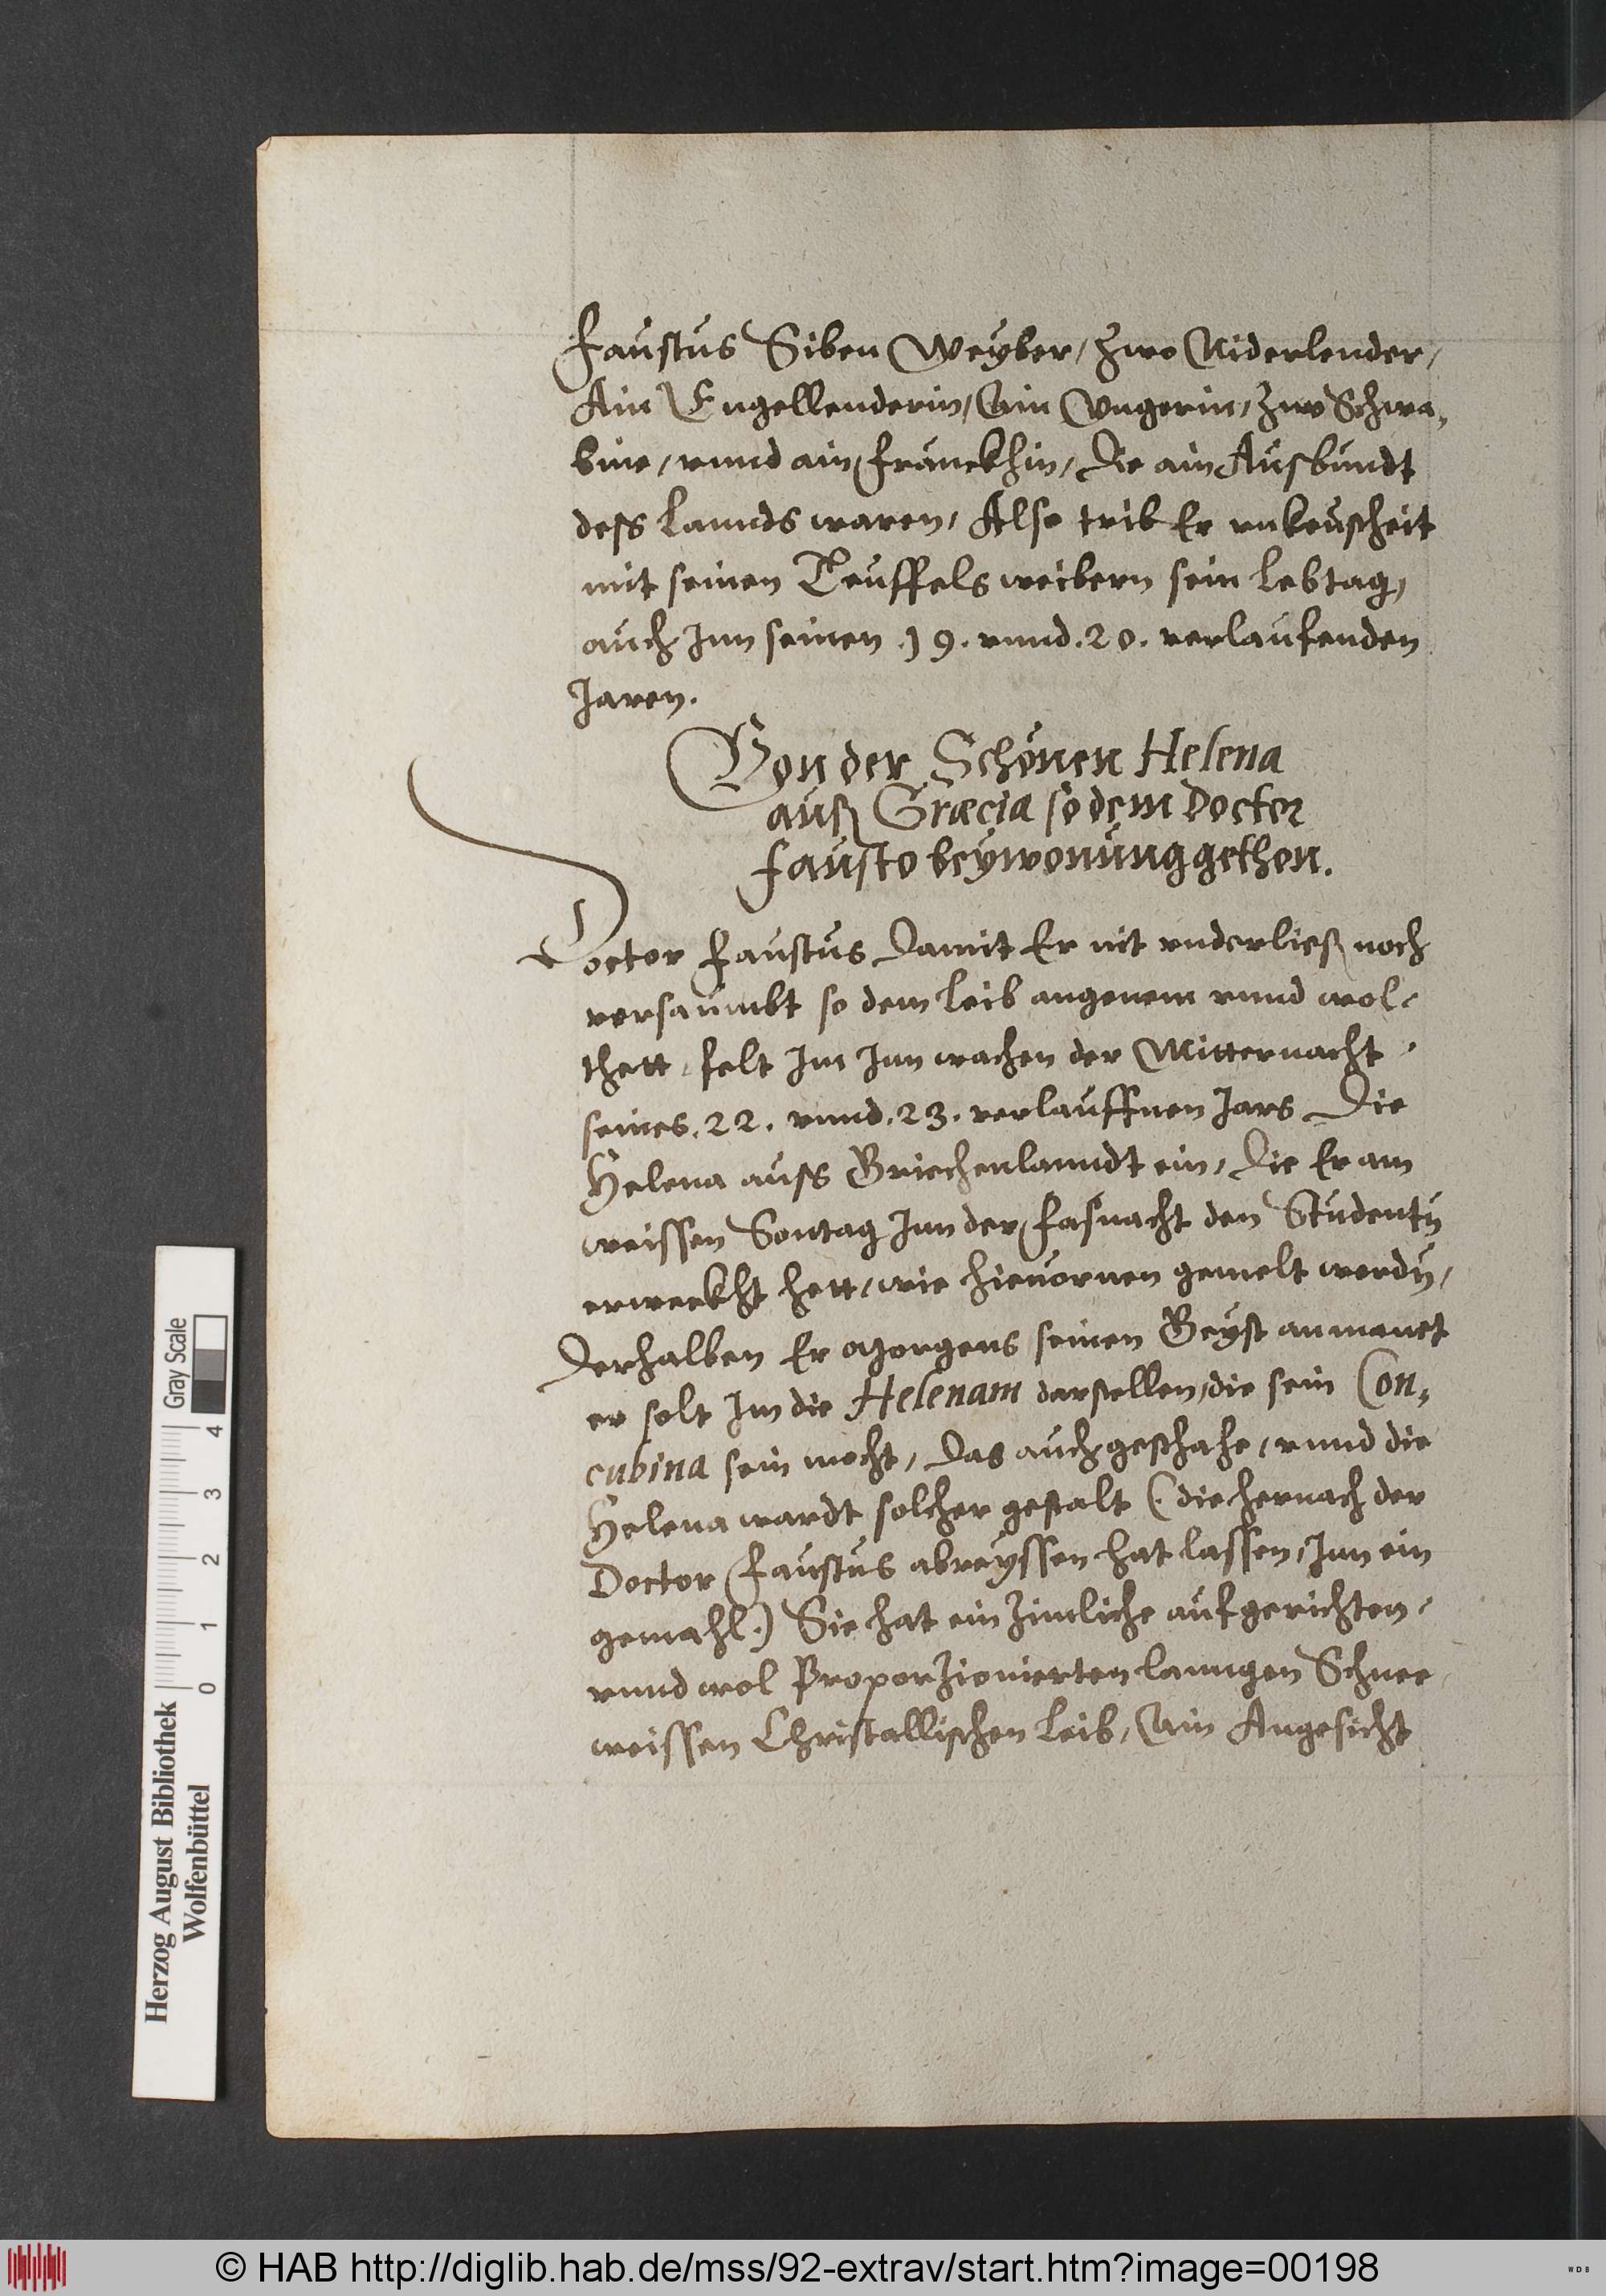 Faustus Siben Weyber, Zwo Niderlender,
Ain Engellenderin, Ain Vngerin, Zwo Schwa,
bine, vnnd ain Franckhin, Die ain Ausbundt
dess Lannds waren, Also trib Er vnkeuscheit
mit seinen Teuffels weibern sein Lebtag,
auch Inn seinen .19. vnnd .20. verlaufenden
Jaren.
Von der Schönen Helena
auß Græcia so dem Docter
Fausto beywonung gethon.
Doctor Faustus Damit Er nit vnderließ noch
versaumbt so dem Leib angenem vnnd wol-
thett, felt Im Inn wachen der Mitternacht
seines .22. vnnd .23. verlauffnen Jars Die
Helena auss Griechenlanndt ein, Die Er am
weissen Sontag Inn der Fasnacht den Studentn
erweckht hett, wie hieuornen gemelt werdn,
Derhalben Er Morgens seinen Geyst anmanet
er solt Im die Helenam darstellen, die sein Con,
cubina sein mocht, Das auch geschahe, vnnd die
Helena wardt solcher gestalt (die hernach der
Doctor Faustus abreyssen hat lassen, Inn ein
gemahl.) Sie hat ein Zimliche aufgerichten,
vnnd wol Proporzionierten lanngen Schnee
weissen Christallischen Leib, Ain Angesicht
Herzog August Bibliothek
Wolfenbüttel
0 1 2 3 4
Gray Scale
© HAB http://diglib.hab.de/mss/92-extrav/start.htm?image=00198
WDB